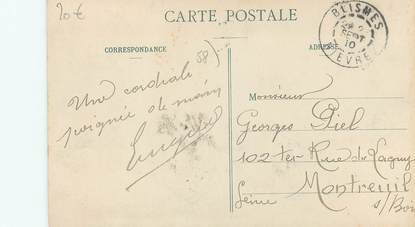 20€
CARTE POSTALE
BLISMES
SEPT
10
NIÈVRE
CORRESPONDANCE
ADRESSE
58
Une cordiale
poignée de main
Monsieur
Georges Piel
102 ter Rue de Lagny
Montreuil
s/ Bois
Seine